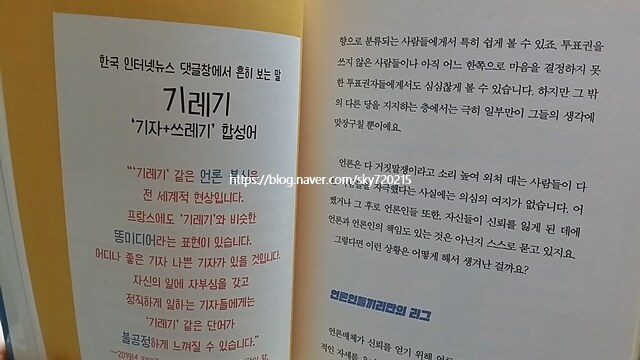 한국 인터넷뉴스 댓글창에서 흔히 보는 말
기레기
‘기자+쓰레기’ 합성어
“‘기레기’ 같은 언론 불신은
전 세계적 현상입니다.
프랑스에도 ‘기레기’와 비슷한
똥미디어라는 표현이 있습니다.
어디나 좋은 기자 나쁜 기자가 있을 것입니다.
자신의 일에 자부심을 갖고
정직하게 일하는 기자들에게는
‘기레기’ 같은 단어가
불공정하게 느껴질 수 있습니다.”
https://blog.naver.com/sky720215
향으로 분류되는 사람들에게서 특히 쉽게 볼 수 있죠. 투표권을
쓰지 않은 사람들이나 아직 어느 한쪽으로 마음을 결정하지 못
한 투표권자들에게서도 심심찮게 볼 수 있습니다. 하지만 그 밖
의 다른 당을 지지하는 층에서는 극히 일부만이 그들의 생각에
맞장구칠 뿐이에요.
언론은 다 거짓말쟁이라고 소리 높여 외쳐 대는 사람들이 다
자극했다는 사실에는 의심의 여지가 없습니다. 어
쨌거나 그 후로 언론인들 또한, 자신들이 신뢰를 잃게 된 데에
언론과 언론인의 책임도 있는 것은 아닌지 스스로 묻고 있지요.
그렇다면 이런 상황은 어떻게 해서 생겨난 걸까요?
언론인들끼리만의 리그
언론매체가 신뢰를 얻기 위해
적인 자세를